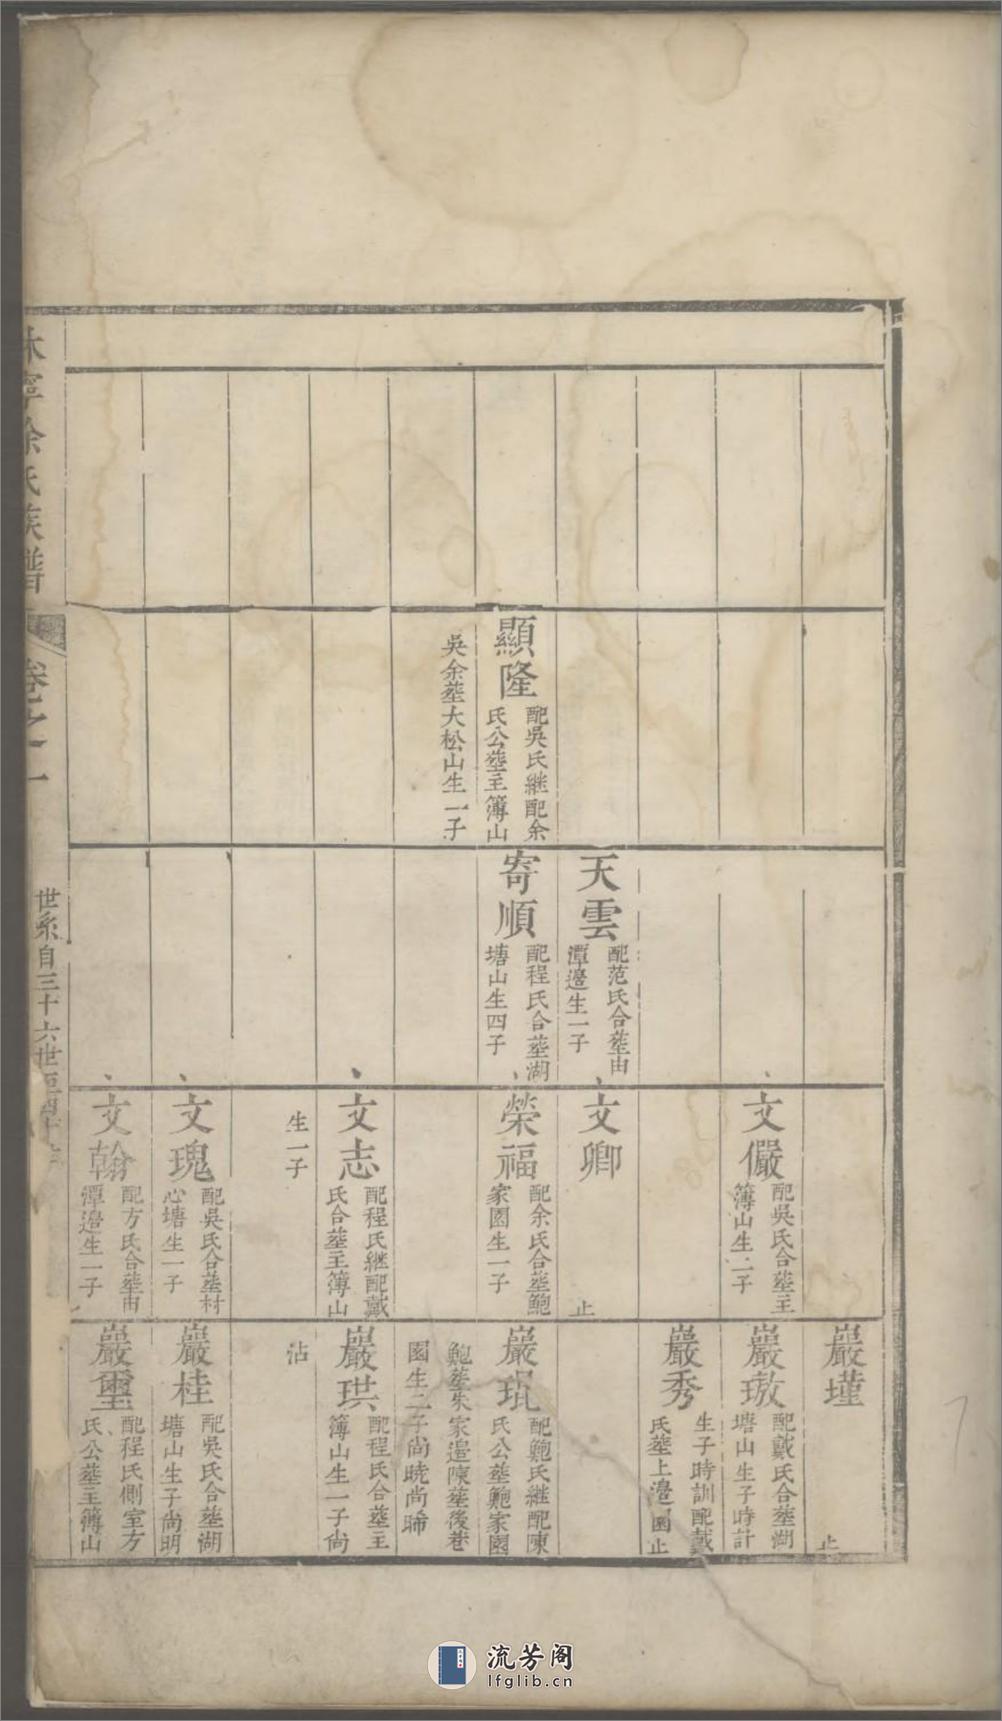 顯隆
配吳氏継配余
氏公塟主簿山
吳余塟大松山生一子
天雲
配范氏合塟由
潭邉生一子
寄順
配程氏合塟湖
塘山生四子
文儼
配吳氏合塟主
簿山生二子
文卿
止
榮福
配余氏合塟鮑
家園生一子
文志
配程氏継配戴
氏合塟主簿山
生一子
文瑰
配吳氏合塟村
心塘生一子
文翰
配方氏合塟由
潭邉生一子
巖墐
止
巖璈
配戴氏合塟湖
塘山生子時計
巖秀
生子時訓配戴
氏塟上邉園止
巖琨
配鮑氏継配陳
氏公塟鮑家園
鮑塟朱家邉陳塟後巷
園生二子尚曉尚晞
巖珙
配程氏合塟主
簿山生一子尚
沾
巖桂
配吳氏合塟湖
塘山生子尚明
巖璽
配程氏側室方
氏公塟主簿山
休寧余氏族譜
卷之一
世系自三十六世至四十
流芳阁
lfglib.cn